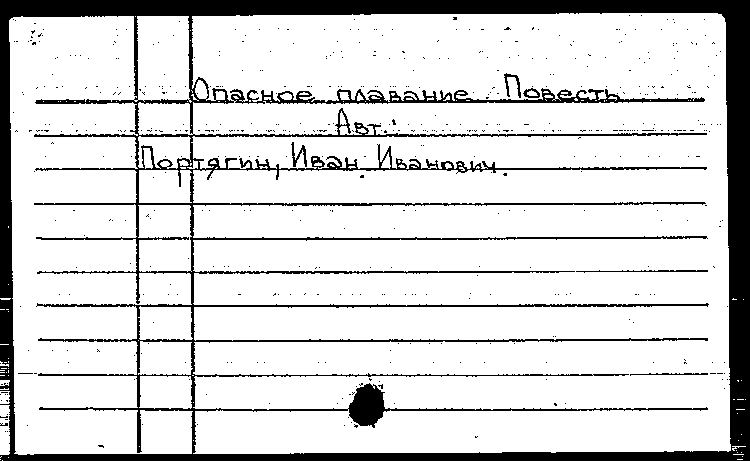 Опасное плавание. Повесть
Авт.:
Портягин, Иван Иванович.